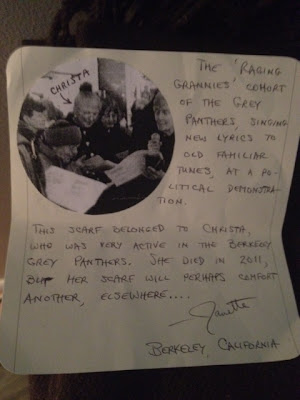 CHRISTA
THE 'RAGING
GRANNIES' COHORT
OF THE GREY
PANTHERS, SINGING
NEW LYRICS TO
OLD FAMILIAR
TUNES, AT A PO-
LITICAL DEMONSTRA-
TION.
THIS SCARF BELONGED TO CHRISTA,
WHO WAS VERY ACTIVE IN THE BERKELEY
GREY PANTHERS. SHE DIED IN 2011,
BUT HER SCARF WILL PERHAPS COMFORT
ANOTHER, ELSEWHERE....
Janette
BERKELEY, CALIFORNIA